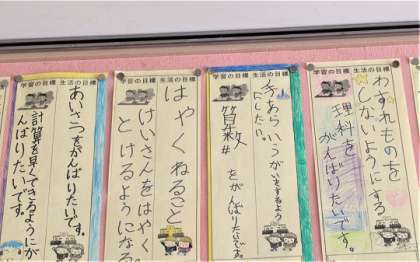 学習の目標 生活の目標
わすれものを
しないようにする
理科を
がんばりたいです。
学習の目標 生活の目標
手あらいうがい
にしたい。
算数
をがんばりたいです。
学習の目標 生活の目標
はやくねること
けいさんをはやく
とけるようになる
学習の目標 生活の目標
あいさつをがんばりたいです。
計算を早くできるようにが
んばりたいです。